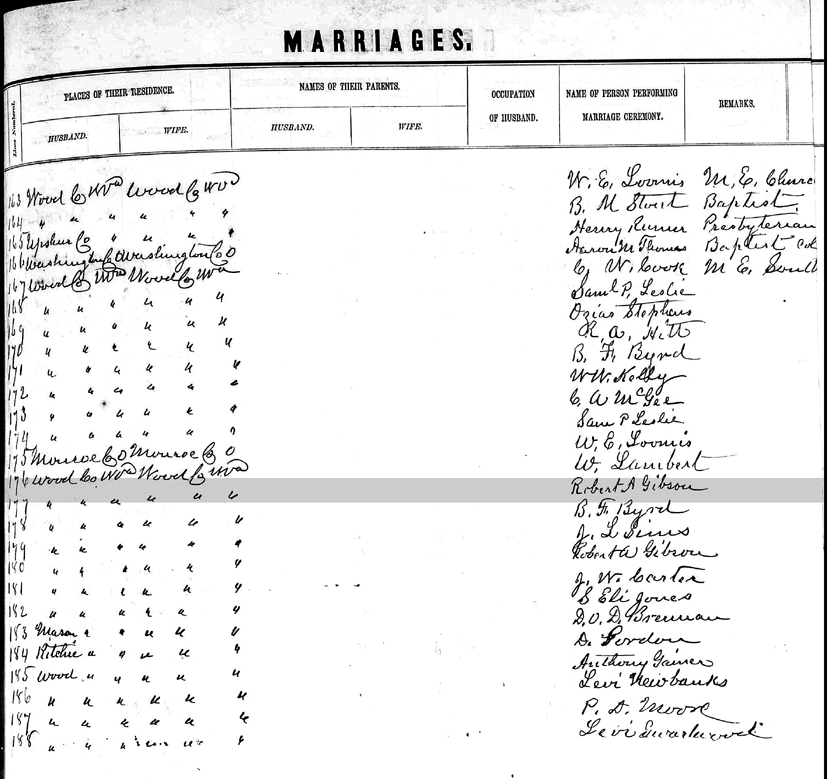 MARRIAGES.
Lines Numbered. PLACES OF THEIR RESIDENCE. NAMES OF THEIR PARENTS. OCCUPATION OF HUSBAND. NAME OF PERSON PERFORMING MARRIAGE CEREMONY. REMARKS.
HUSBAND. WIFE. HUSBAND. WIFE.
163 Wood Co Wva Wood Co Wva W. E. Loomis M. E. Churc
164 " " " " " " B. M Stout Baptist
165 Upshur Co " " " " Henry Rumer Presbyterian
166 Washington Co O Washington Co O Aaron M Thomas Baptist Col
167 Wood Co Wva Wood Co Wva C. W. Cook M E South
168 " " " " " " Saml P. Leslie
169 " " " " " " Ozias Stephens
170 " " " " " " R. A. Hitt
171 " " " " " " B. F. Byrd
172 " " " " " " W W. Kelly
173 " " " " " " C. A McGee
174 " " " " " " Sam P Leslie
175 Monroe Co O Monroe Co O W. E. Loomis
176 Wood Co Wva Wood Co Wva W. Lambert
177 " " " " " " Robert A Gibson
178 " " " " " " B. F. Byrd
179 " " " " " " J. L Sims
180 " " " " " " Robert A Gibson
181 " " " " " " J. W. Carter
182 " " " " " " S Eli Jones
183 Mason " " " " " D. O. D. Brennan
184 Ritchie " " " " " D. Gordon
185 Wood " " " " " Anthony Gainer
186 " " " " " " Levi Newbanks
187 " " " " " " P. D. Moore
188 " " " " " " Levi